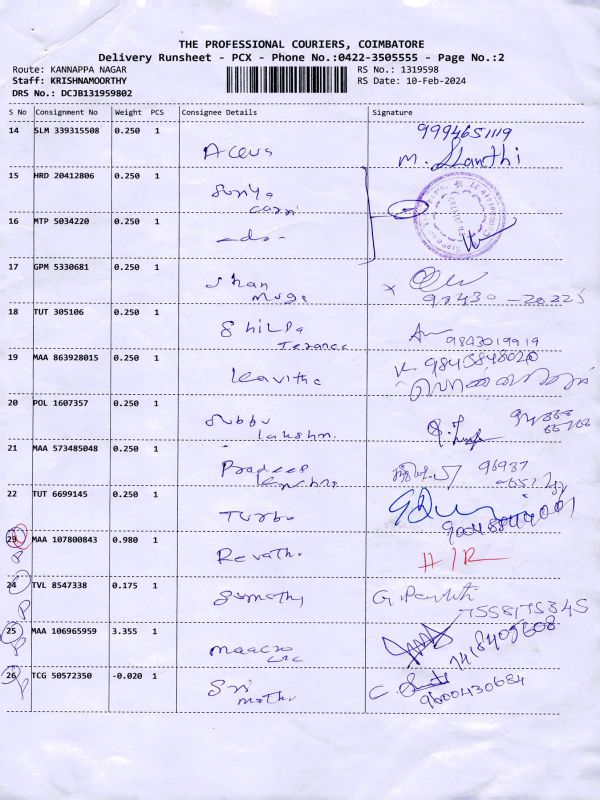 THE PROFESSIONAL COURIERS, COIMBATORE
Delivery Runsheet - PCX - Phone No.:0422-3505555 - Page No.:2
Route: KANNAPPA NAGAR RS No.: 1319598
Staff: KRISHNAMOORTHY RS Date: 10-Feb-2024
DRS No.: DCJB131959802
S No Consignment No Weight PCS Consignee Details Signature
14 SLM 339315508 0.250 1 9994651119
M. Shanthi
15 HRD 20412806 0.250 1 Surya
16 MTP 5034220 0.250 1 -do-
17 GPM 5330681 0.250 1 Shan
muga 98430-20225
18 TUT 305106 0.250 1 Shilpa 9843019919
19 MAA 863928015 0.250 1 Kavitha 9843848020
20 POL 1607357 0.250 1 Subbu
lakshm.
21 MAA 573485048 0.250 1 Pradeep 96937
22 TUT 6699145 0.250 1 Turbo
23 MAA 107800843 0.980 1 Revathi H/R
24 TVL 8547338 0.175 1 Sumathy 7558175345
25 MAA 106965959 3.355 1 7418409608
26 TCG 50572350 -0.020 1 Sri
mathi 9600430684